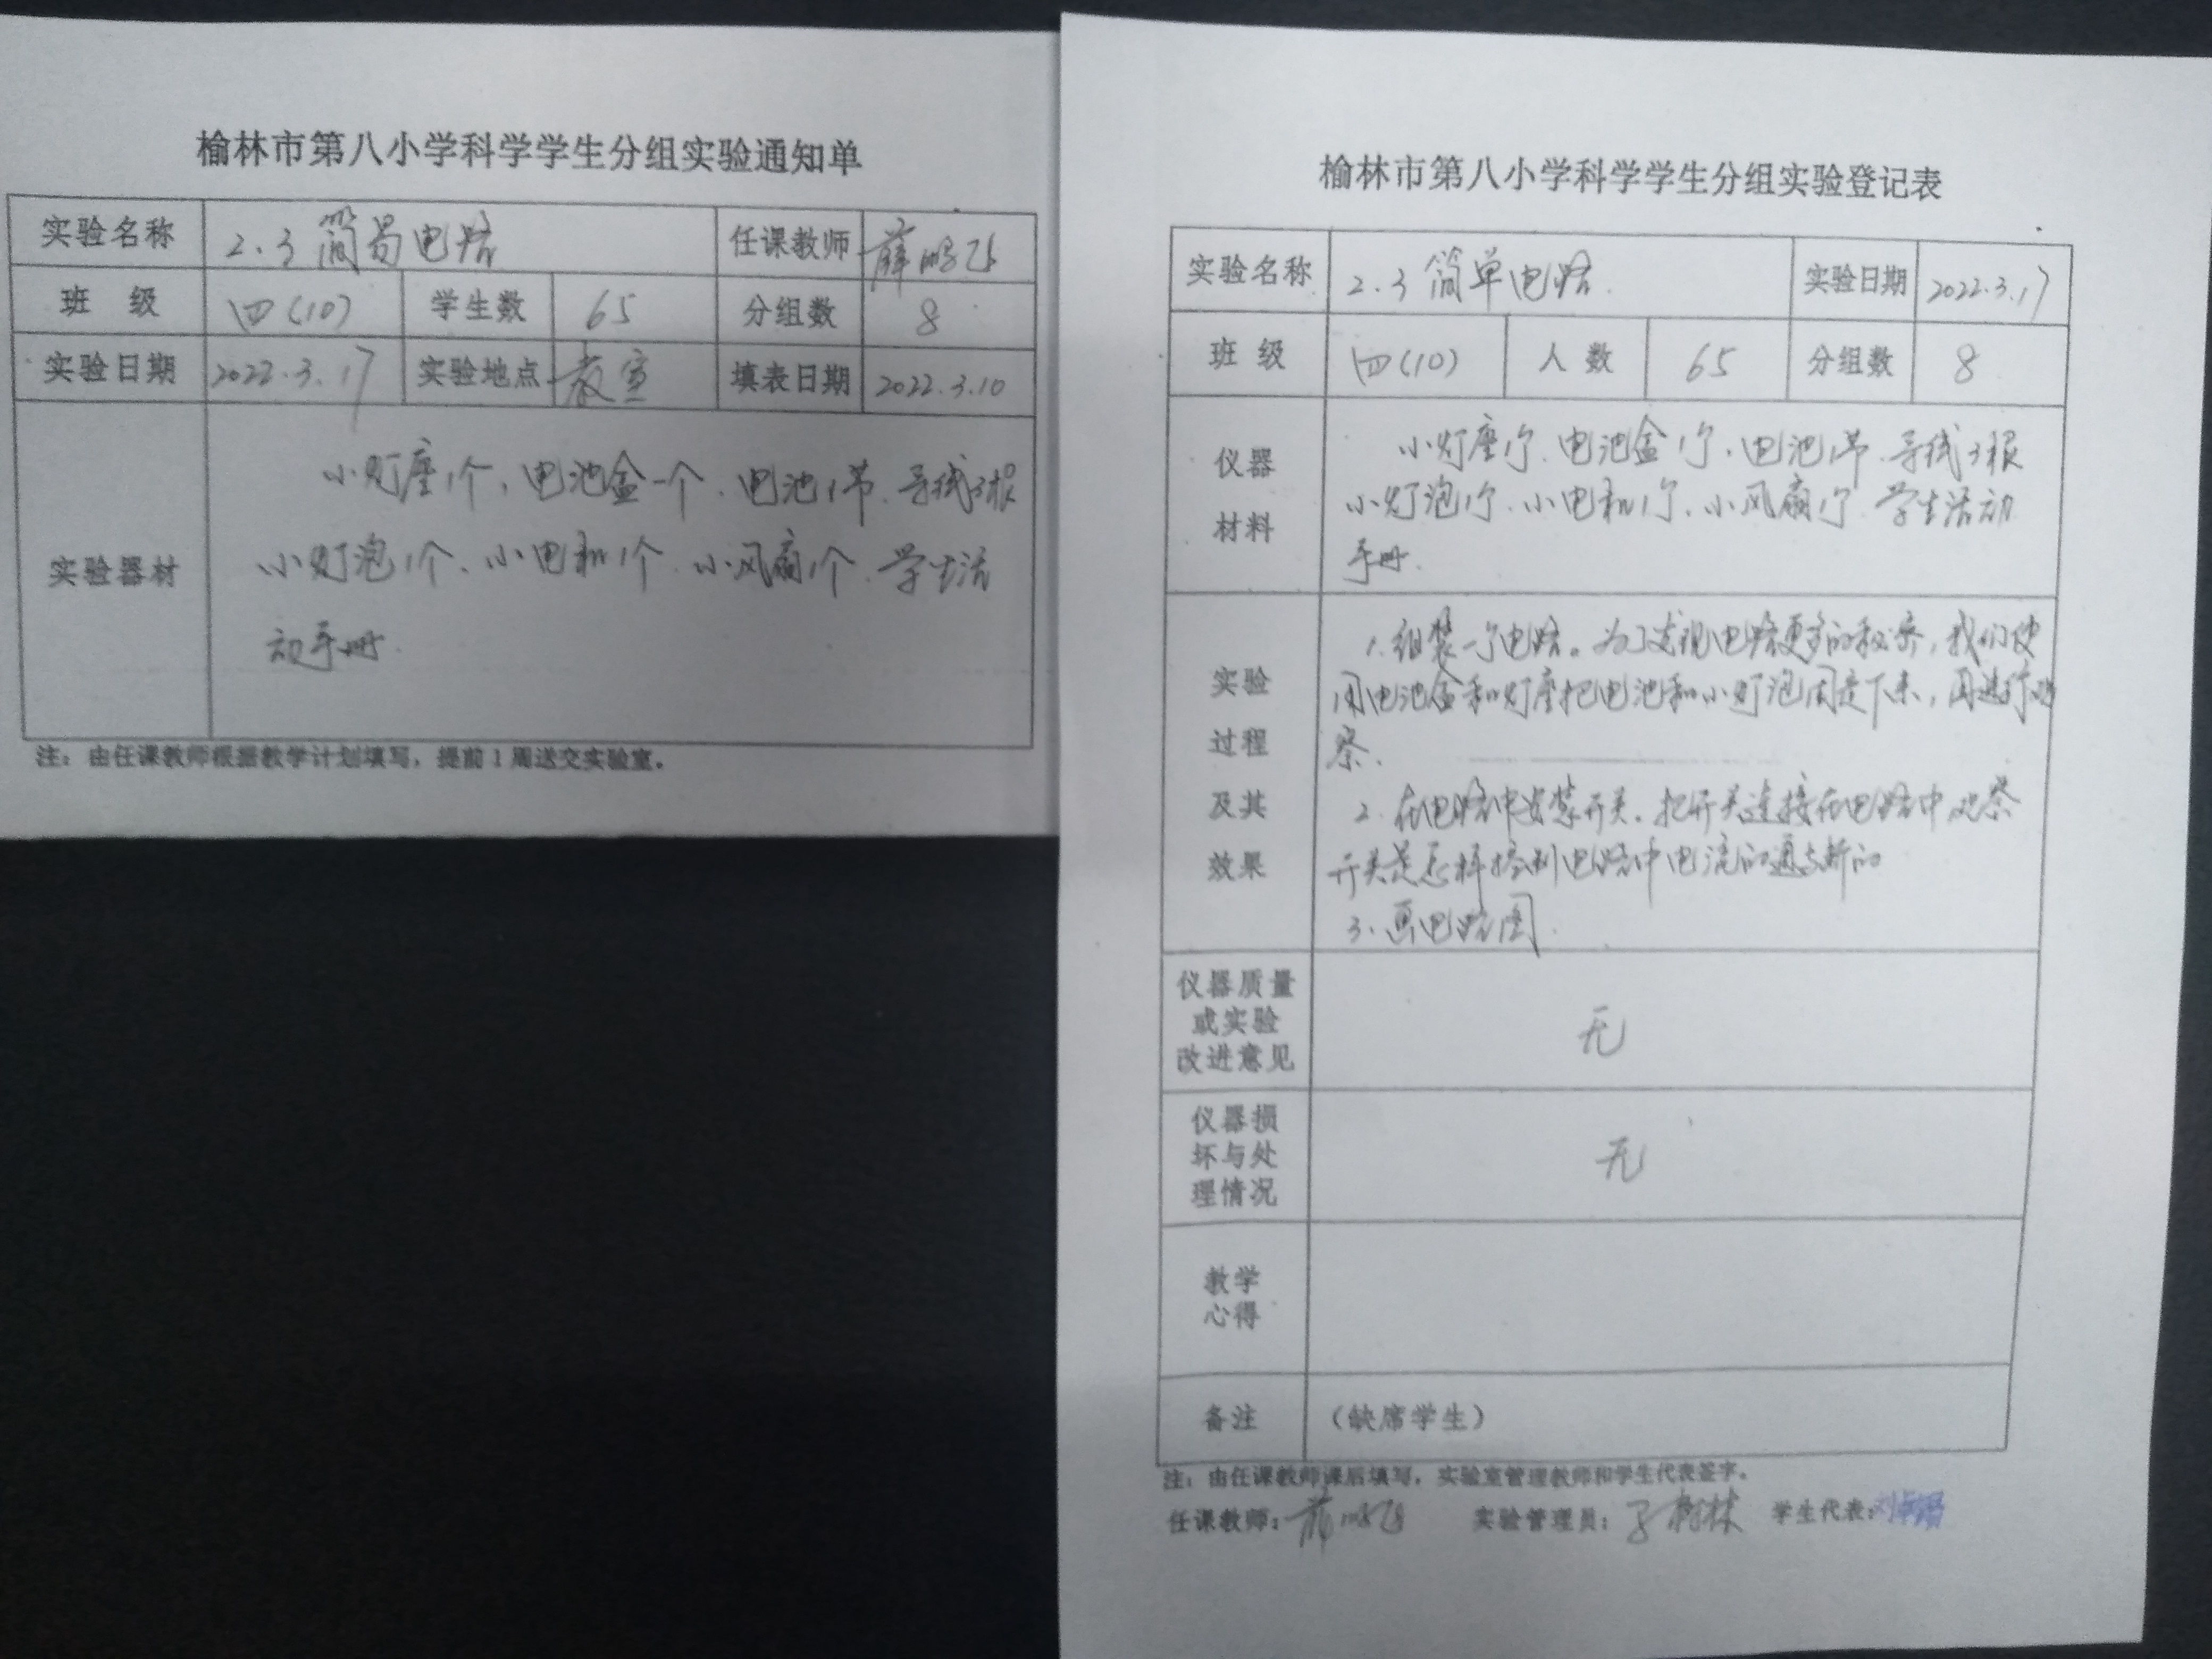 榆林市第八小学科学学生分组实验通知单
实验名称 2.3 简易电路 任课教师 薛鹏飞
班 级 四(10) 学生数 65 分组数 8
实验日期 2022.3.17 实验地点 教室 填表日期 2022.3.10
实验器材
小灯座1个、电池盒一个、电池1节、导线3根
小灯泡1个、小电机1个、小风扇1个、学生活
动手册.
注：由任课教师根据教学计划填写，提前1周送交实验室。
榆林市第八小学科学学生分组实验登记表
实验名称 2.3 简单电路. 实验日期 2022.3.17
班 级 四(10) 人 数 65 分组数 8
仪器
材料
小灯座1个、电池盒1个、电池1节、导线3根
小灯泡1个、小电机1个、小风扇1个、学生活动
手册.
实验
过程
及其
效果
1.组装一个电路。为了发现电路更多的秘密，我们使
用电池盒和灯座把电池和小灯泡固定下来，再进行观
察.
2.在电路中安装开关.把开关连接在电路中观察
开关是怎样控制电路中电流的通与断的
3.画电路图.
仪器质量
或实验
改进意见
无
仪器损
坏与处
理情况
无
教学
心得
备注 （缺席学生）
注：由任课教师课后填写，实验室管理教师和学生代表签字。
任课教师：薛鹏飞 实验管理员： 学生代表：